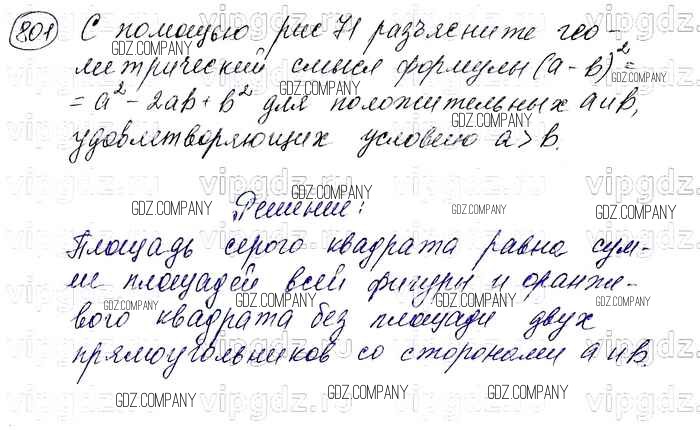 801 С помощью рис 71 разъясните гео-
метрический смысл формулы (a - b)² =
= a² - 2ab + b² для положительных a и b,
удовлетворяющих условию a > b.
Решение:
Площадь серого квадрата равна сум-
ме площадей всей фигуры и оранже-
вого квадрата без площади двух
прямоугольников со сторонами a и b.
GDZ.COMPANY
vipgdz